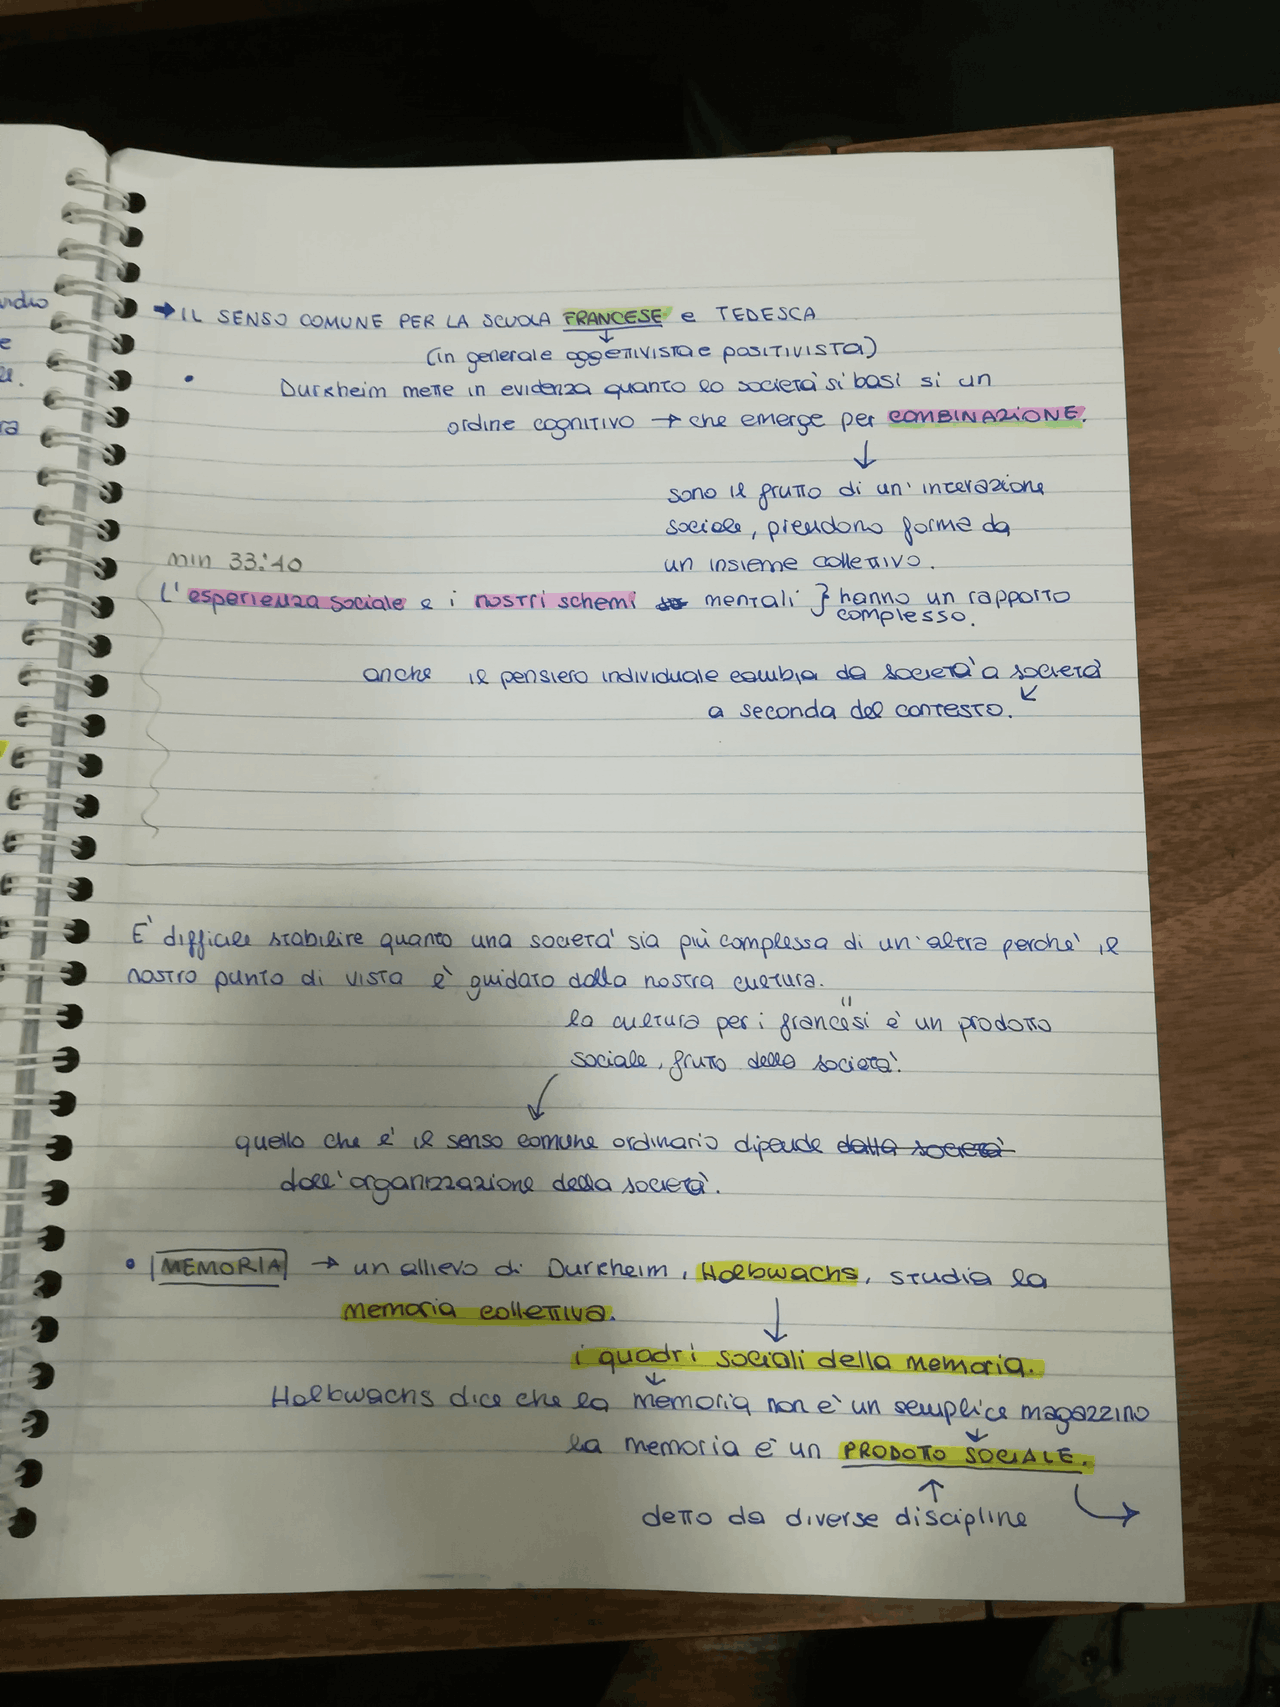 → IL SENSO COMUNE PER LA SCUOLA FRANCESE e TEDESCA
(in generale oggettivista e positivista)
• Durkheim mette in evidenza quanto la società si basi si un
ordine cognitivo → che emerge per COMBINAZIONE.
sono il frutto di un'interazione
sociale, prendono forme da
un insieme collettivo.
min 33:40
L'esperienza sociale e i nostri schemi mentali } hanno un rapporto
complesso.
anche il pensiero individuale cambia da società a società
a seconda del contesto.
E' difficile stabilire quanto una società sia più complessa di un'altra perchè il
nostro punto di vista è guidato dalla nostra cultura.
la cultura per i francesi è un prodotto
sociale, frutto della società.
quello che è il senso comune ordinario dipende dalla società
dall'organizzazione della società.
• MEMORIA → un allievo di Durkheim, Halbwachs, studia la
memoria collettiva.
i quadri sociali della memoria.
Halbwachs dice che la memoria non è un semplice magazzino
la memoria è un PRODOTTO SOCIALE.
detto da diverse discipline